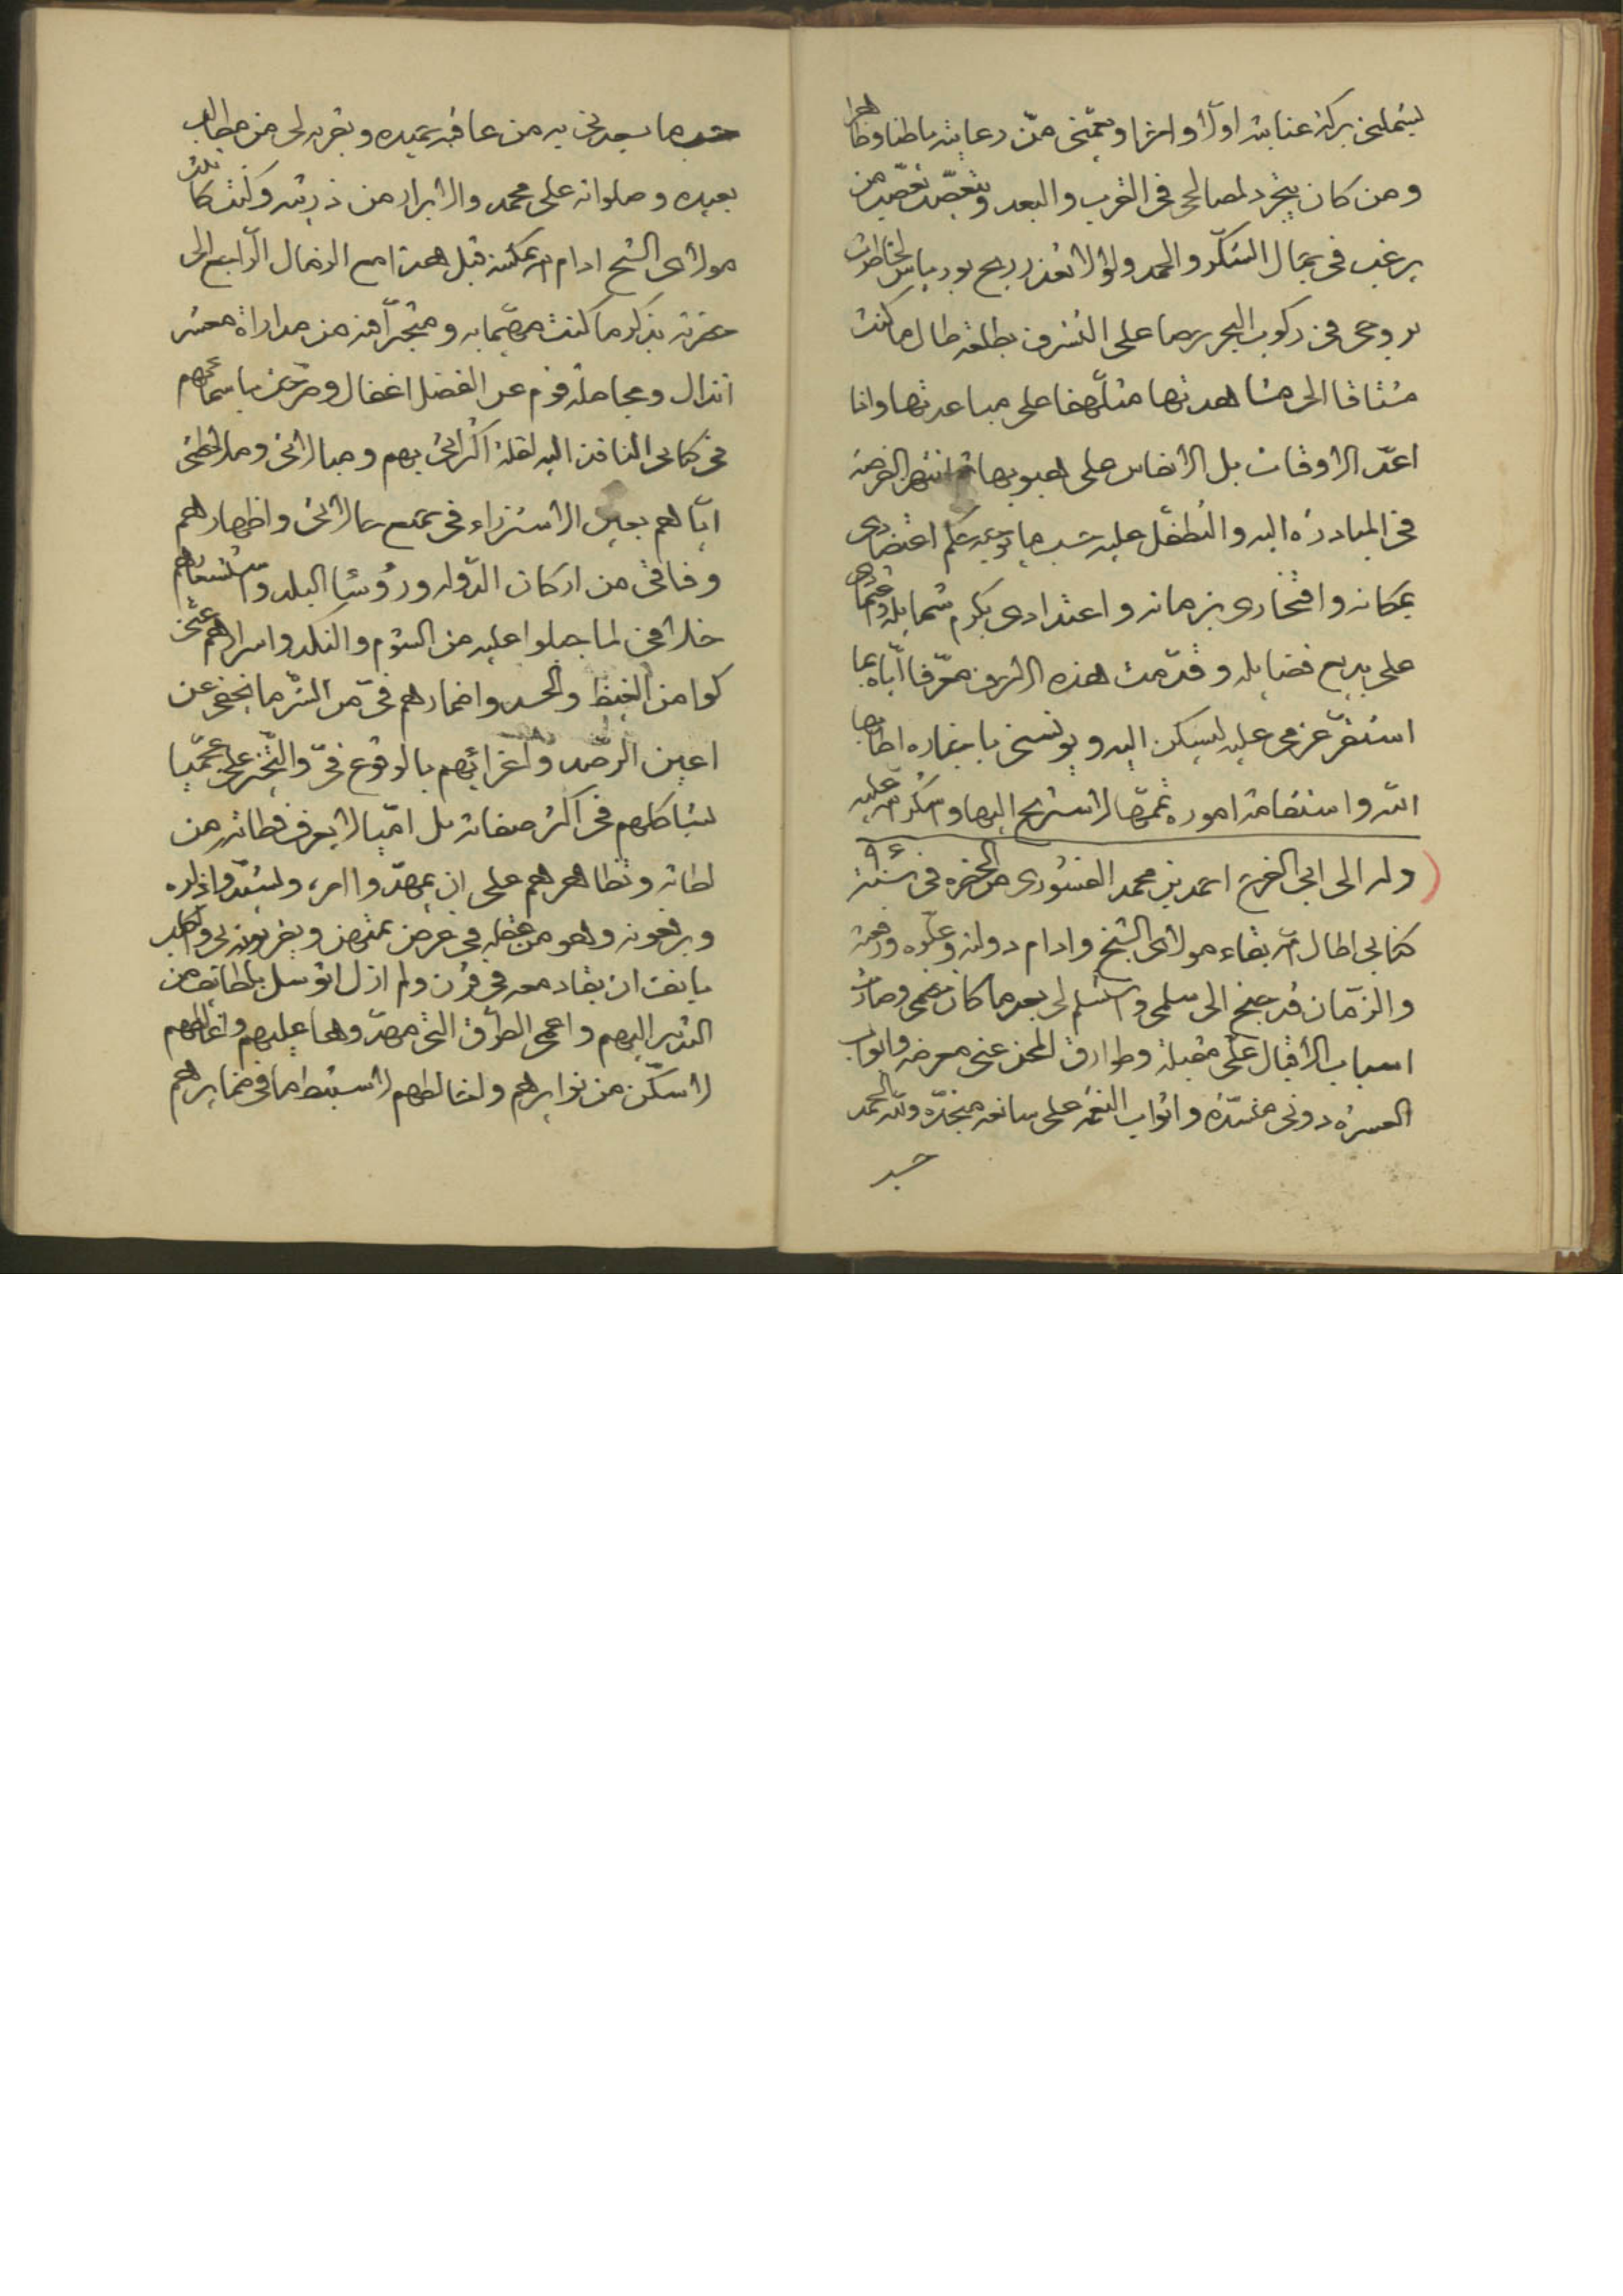 ليشملنى بركة عنايته اولا واخرا ويعمّنى من رعايته باطنا وظاهرا
ومن كان يتجرد لمصالحى فى القرب والبعد ويتعصّب تعصّب من
يرغب فى جمال الشكر والحمد ولولا تعذر ريح بورياس لخاطرت
بروحى فى ركوب البحر حرصا على التشرف بطلعة طال ما كنت
مشتاقا الى مشاهدتها متلّهفا على مباعدتها وانا
اعدّ الاوقات بل الانفاس على هبوبها انتهز الفرصة
فى المبادرة اليه والتطفّل عليه حسب ما يوجبه حكم اعتضادى
بمكانه وافتخارى بزمانه واعتدادى بكرم شمايله واعتمادى
على بديع فضايله وقدّمت هذه الاحرف معرّفا ايّاه بما
استقرّ عزمى عليه ليسكن اليه ويؤنسنى باخباره اطابها
الله واستقامة اموره تممّها لاستريح اليها واشكر الله عليه
وله الى ابى الفرج احمد بن محمد الفسّورى من الحضرة فى سنة ٩٤
كتابى اطال الله بقاء مولاى الشيخ وادام دولته وعلوه ورفعته
والزمان قد جنح الى سلمى واستسلم لى بعد ما كان خصمى وصارت
اسباب الاقبال علىّ مقبلة وطوارق المحن عنى معرضه وابواب
العسرة دونى منسدّة واثواب النعم على سابغه متجدّده ولله الحمد
حسب
حسب ما يسعدنى به من عافية حميده ويقربه لى من مطالب
بعيده وصلواته على محمد والابرار من ذريته وكنت كاتبت
مولاى الشيخ ادام الله تمكينه قبل هذا مع الرضال الراجع الى
حضرته بذكر ما كنت مهتما به ومتجرّا فيه من مداراة معشر
انذال ومجاملة قوم عن الفضل اغفال وصرّحت باسمائهم
فى كتابى النافذ اليه لقلة اكتراثى بهم ومبالاتى وملاحظتى
ايّاهم بعين الاستزراء فى جميع حالاتى واظهارهم
وفاقى من اركان الدّوله ورؤسا البلد واستشعارهم
خلافى لما جبلوا عليه من الشوم والنكد واسرارهم عنى
كوامن الغيظ والحسد واضمارهم فىّ من الشرّ ما يخفى عن
اعين الرصد واغرائهم بالوقوع فىّ والتجرّى علىّ عمّيا
يشاكلهم فى اكثر صفاته بل امّيا لا يعرف قطاته من
لطاته وتظاهرهم على ان يمهّدوا امره ويشدّوا ازره
ويرفعونه وهو من غفله فى عرض ممتهن ويقربونه لى والكلب
يانف ان يقاد معه فى قرن ولم ازل اتوسل بلطائف من
التدبير اليهم واعمى الطرق التى مهدّوها عليهم واغالطهم
لاسكّن من نوايرهم واخالطهم لاستنبط ما فى ضمايرهم